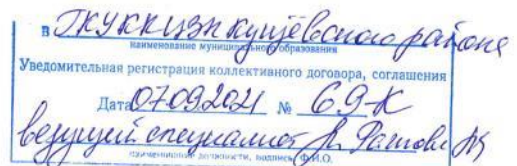 в ГКУ КК ЦЗН Кущёвского района
наименование муниципального образования
Уведомительная регистрация коллективного договора, соглашения
Дата 07.09.2021 № 69-К
ведущий специалист
наименование должности, подпись, Ф.И.О.